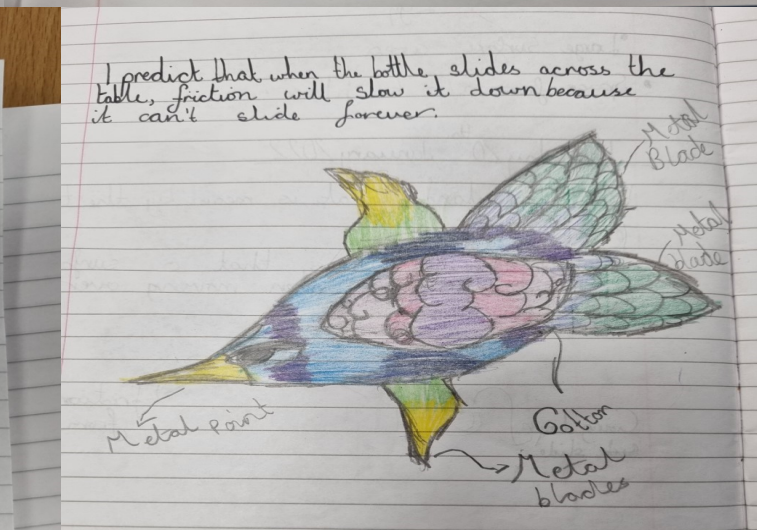 I predict that when the bottle slides across the
table, friction will slow it down because
it can't slide forever.
Metal
Blade
Metal
blade
Metal point
Cotton
Metal
blades